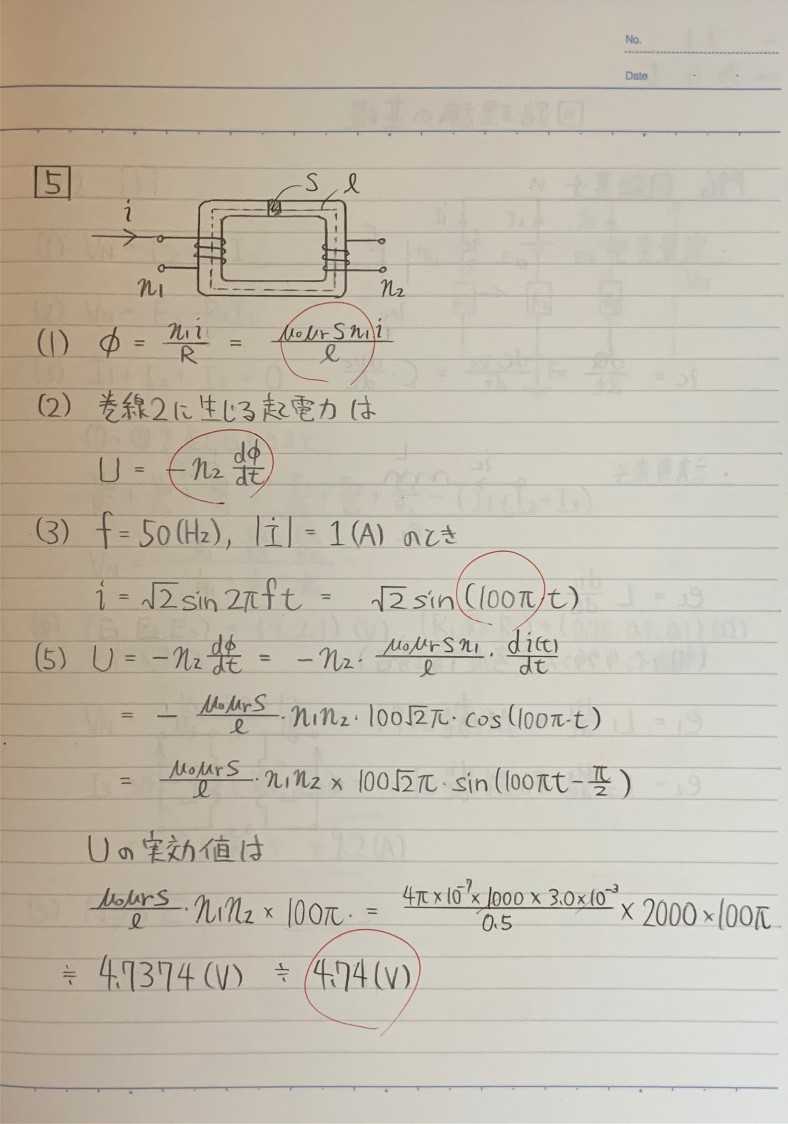 No.
Date
5
S l
i
n₁ n₂
(1) φ = n₁i/R = μ₀μrSn₁i/l
(2) 巻線2に生じる起電力は
U = -n₂ dφ/dt
(3) f = 50(Hz), |İ| = 1(A) のとき
i = √2 sin 2πft = √2 sin(100π·t)
(5) U = -n₂ dφ/dt = -n₂· μ₀μrSn₁/l · di(t)/dt
= - μ₀μrS/l · n₁n₂ · 100√2π · cos(100π·t)
= μ₀μrS/l · n₁n₂ × 100√2π · sin(100πt - π/2)
Uの実効値は
μ₀μrS/l · n₁n₂ × 100π. = 4π×10⁻⁷×1000×3.0×10⁻³/0.5 × 2000×100π
≒ 4.7374(V) ≒ 4.74(V)